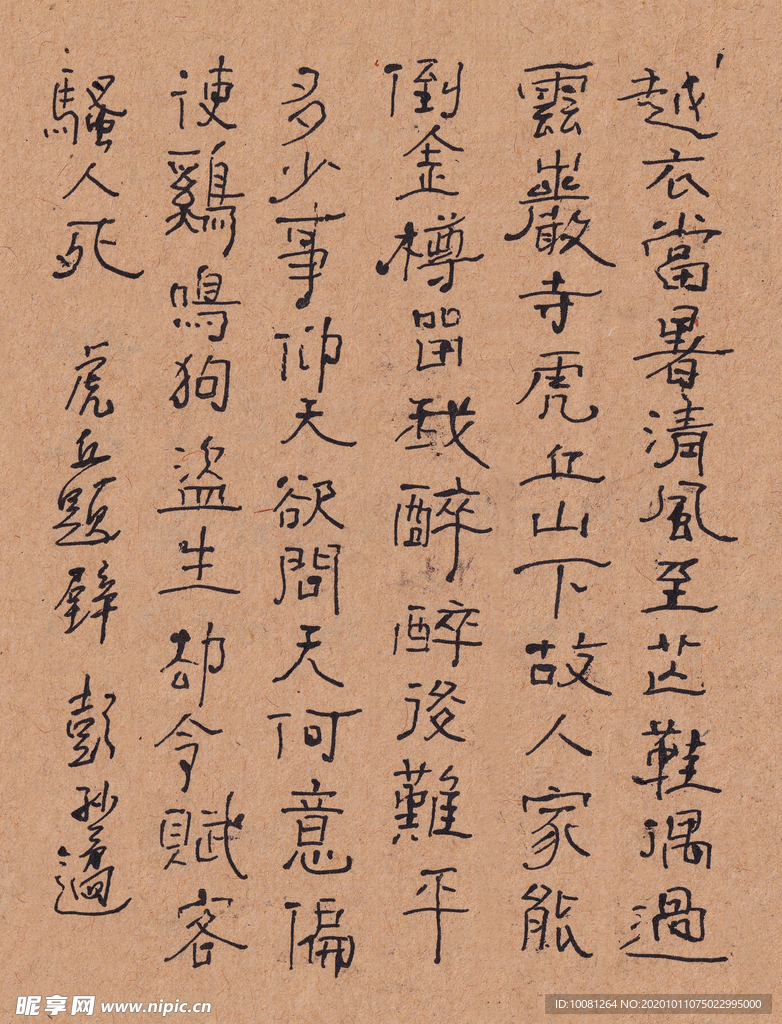 越衣當暑清風至芒鞋偶過
雲巖寺虎丘山下故人家能
倒金樽留我醉醉後難平
多少事仰天欲問天何意偏
使鷄鳴狗盜生却令賦客
騷人死 虎丘題壁 彭孙遹
昵享网 www.nipic.cn
ID:10081264 NO:20201011075022995000